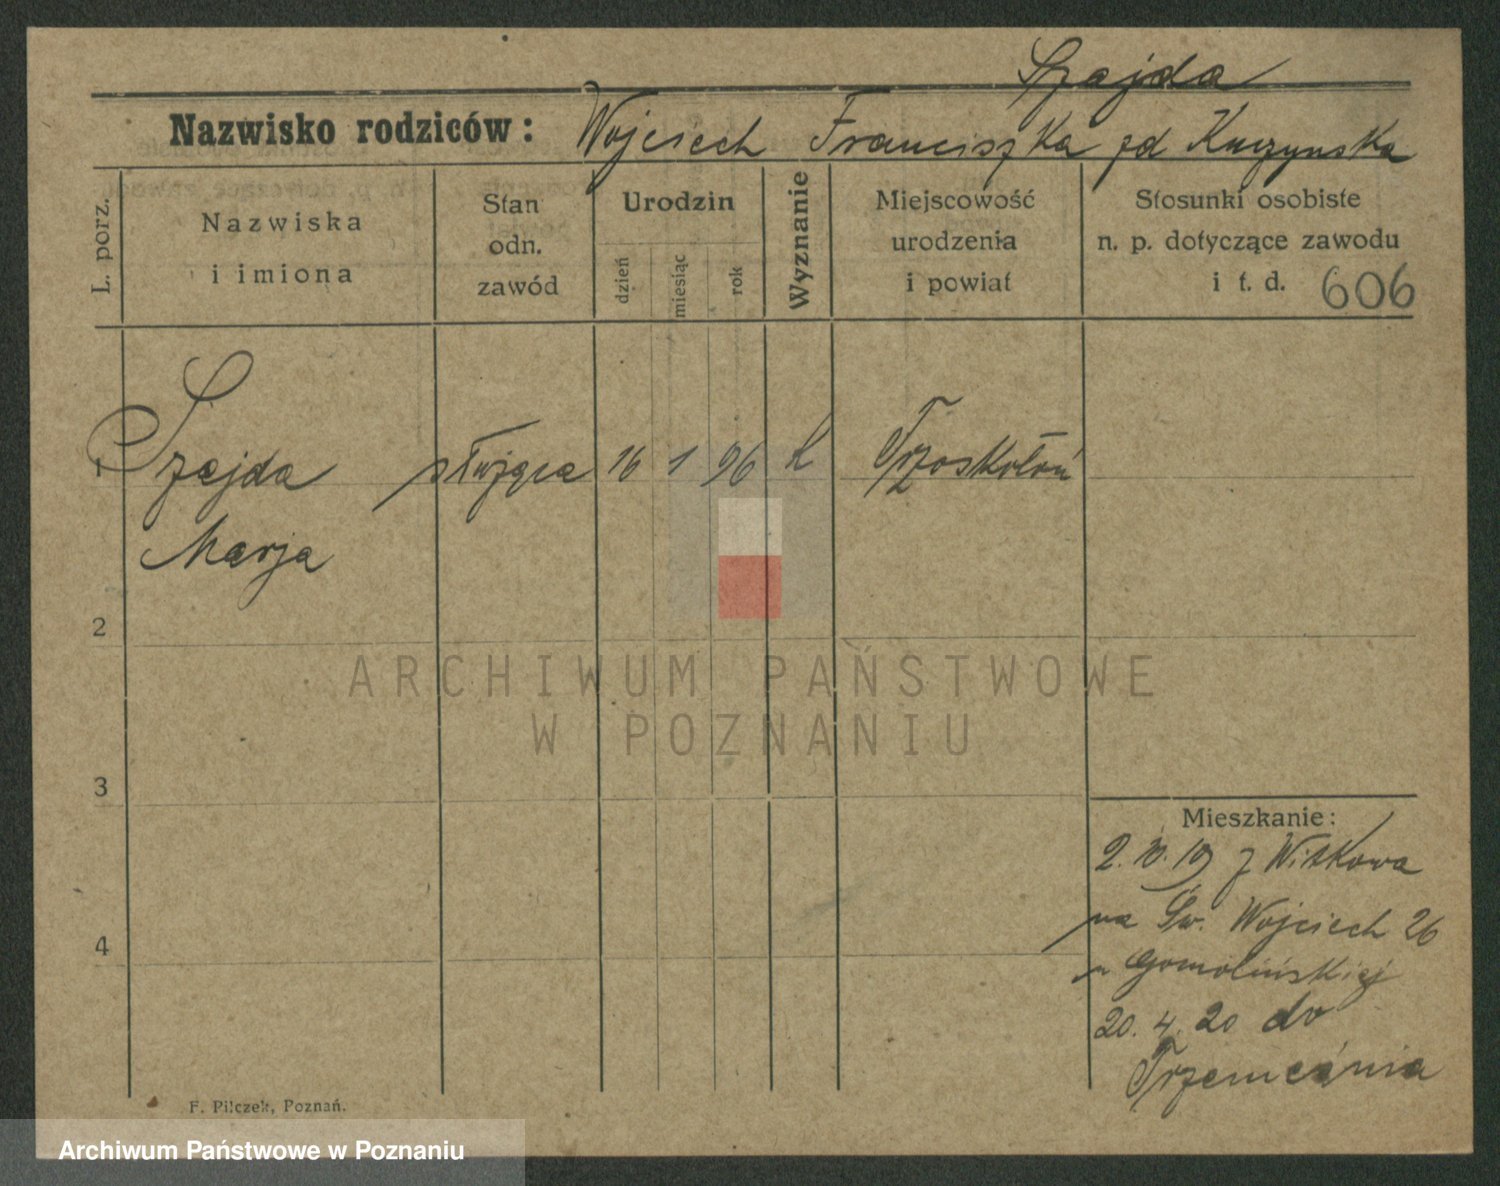 Szajda
Nazwisko rodziców: Wojciech Franciszka zd Kuczynska
L. porz.
Nazwiska
i imiona
Stan
odn.
zawód
Urodzin
dzień
miesiąc
rok
Wyznanie
Miejscowość
urodzenia
i powiat
Stosunki osobiste
n. p. dotyczące zawodu
i t. d. 606
1 Szajda służąca 16 1 96 k Trzoskołoń
Marja
2
3
4
Mieszkanie:
2. 10. 19 z Witkowa
na Św. Wojciech 26
u Gomolińskiej
20. 4. 20 do
F. Pilczek, Poznań.
ARCHIWUM PAŃSTWOWE
W POZNANIU
Archiwum Państwowe w Poznaniu